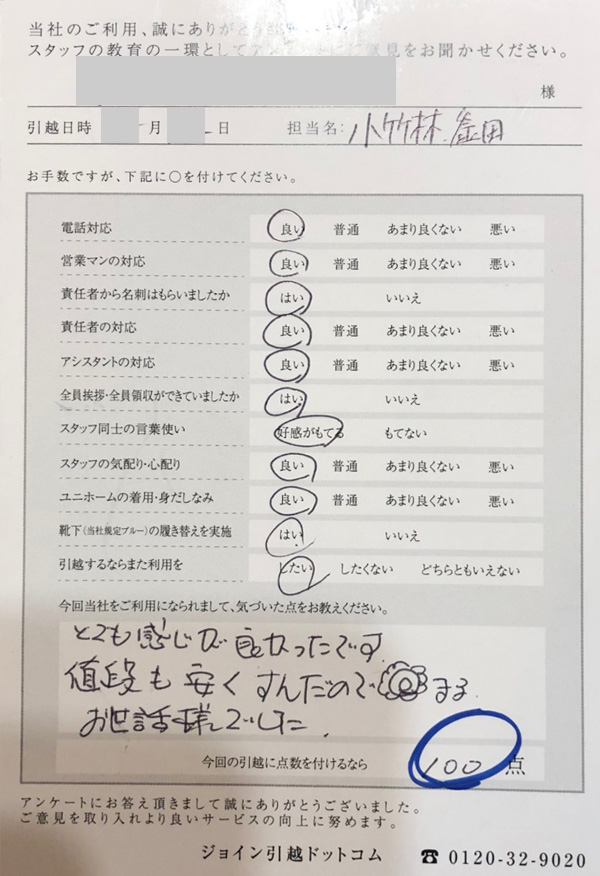 当社のご利用、誠にありがとう
スタッフの教育の一環としてアンケートにご意見をお聞かせください。
様
引越日時 月 日 担当名: 小竹林.釜田
お手数ですが、下記に○を付けてください。
電話対応 良い 普通 あまり良くない 悪い
営業マンの対応 良い 普通 あまり良くない 悪い
責任者から名刺はもらいましたか はい いいえ
責任者の対応 良い 普通 あまり良くない 悪い
アシスタントの対応 良い 普通 あまり良くない 悪い
全員挨拶・全員領収ができていましたか はい いいえ
スタッフ同士の言葉使い 好感がもてる もてない
スタッフの気配り・心配り 良い 普通 あまり良くない 悪い
ユニホームの着用・身だしなみ 良い 普通 あまり良くない 悪い
靴下(当社規定ブルー)の履き替えを実施 はい いいえ
引越するならまた利用を したい したくない どちらともいえない
今回当社をご利用になられまして、気づいた点をお教えください。
とても感じが良かったです
値段も安くすんだので まる
お世話様でした
今回の引越に点数を付けるなら 100 点
アンケートにお答え頂きまして誠にありがとうございました。
ご意見を取り入れより良いサービスの向上に努めます。
ジョイン引越ドットコム ☎ 0120-32-9020